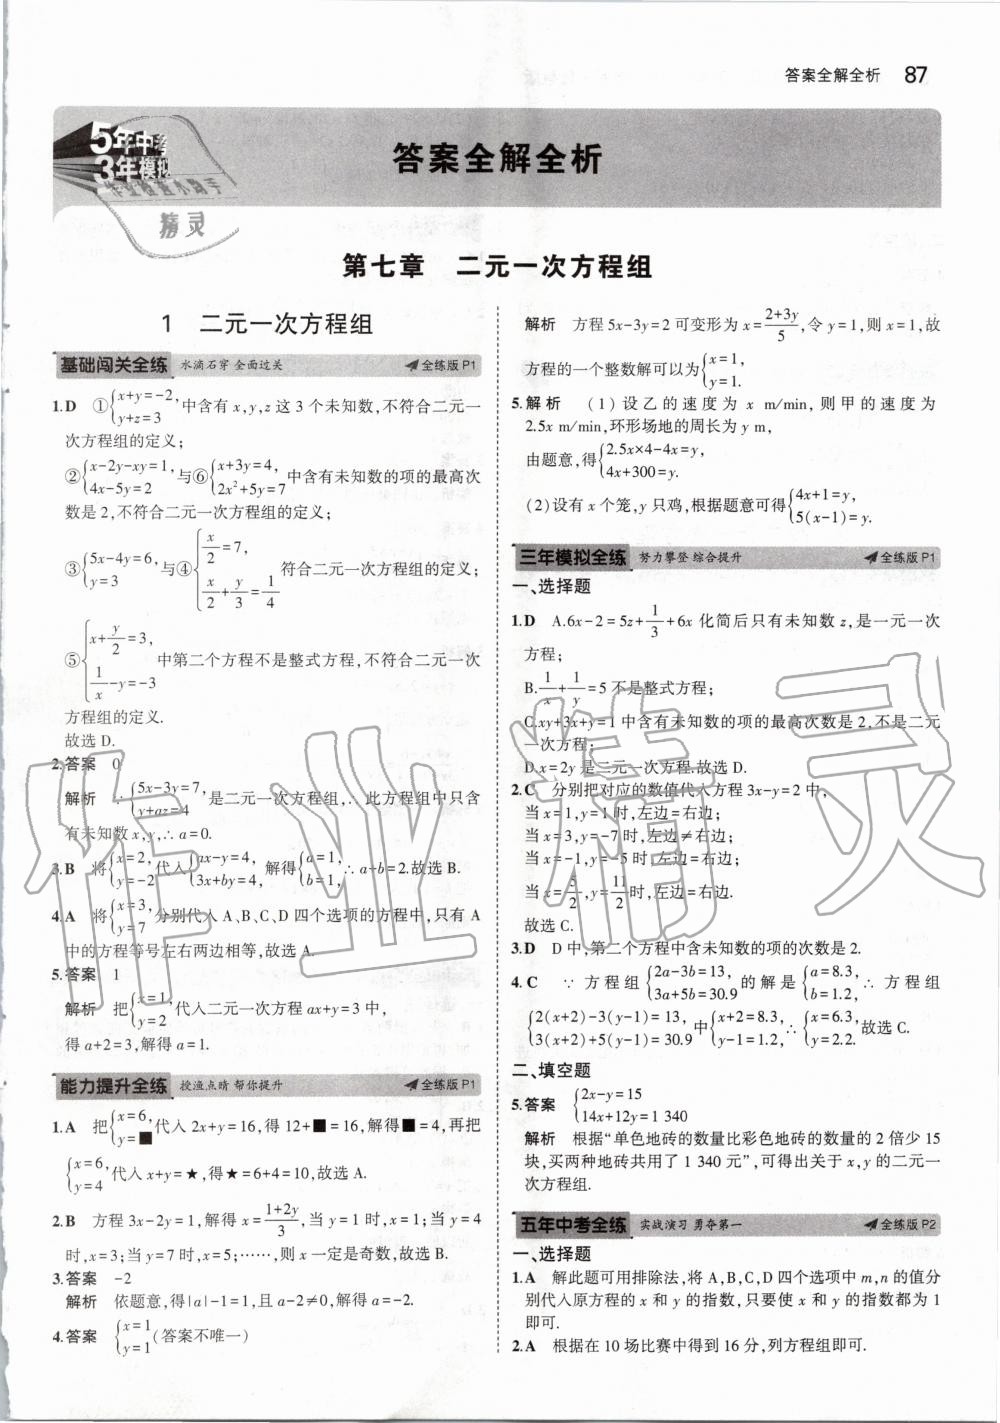 答案全解全析 87
5年中考
3年模拟
作业检查小助手
精灵
答案全解全析
第七章 二元一次方程组
1 二元一次方程组
基础闯关全练 水滴石穿 全面过关 全练版P1
1.D ①{x+y=-2, y+z=3 中含有x,y,z这3个未知数,不符合二元一
次方程组的定义;
②{x-2y-xy=1, 4x-5y=2 与⑥{x+3y=4, 2x²+5y=7 中含有未知数的项的最高次
数是2,不符合二元一次方程组的定义;
③{5x-4y=6, y=3 与④{x/2=7, x/2+y/3=1/4 符合二元一次方程组的定义;
⑤{x+y/2=3, 1/x-y=-3 中第二个方程不是整式方程,不符合二元一次
方程组的定义.
故选D.
2.答案 0
解析 ∵{5x-3y=7, y+az=4 是二元一次方程组,∴此方程组中只含
有未知数x,y,∴a=0.
3.B 将{x=2, y=-2代入{ax-y=4, 3x+by=4, 解得{a=1, b=1, ∴a+b=2.故选B.
4.A 将{x=3, y=7 分别代入A、B、C、D四个选项的方程中,只有A
中的方程等号左右两边相等,故选A.
5.答案 1
解析 把{x=1, y=2 代入二元一次方程ax+y=3中,
得a+2=3,解得a=1.
能力提升全练 授渔点睛 帮你提升 全练版P1
1.A 把{x=6, y=■代入2x+y=16,得12+■=16,解得■=4,再把
{x=6, y=4 代入x+y=★,得★=6+4=10,故选A.
2.B 方程3x-2y=1,解得x=(1+2y)/3,当y=1时,x=1;当y=4
时,x=3;当y=7时,x=5;……,则x一定是奇数,故选B.
3.答案 -2
解析 依题意,得|a|-1=1,且a-2≠0,解得a=-2.
4.答案 {x=1 y=1(答案不唯一)
解析 方程5x-3y=2可变形为x=(2+3y)/5,令y=1,则x=1,故
方程的一个整数解可以为{x=1, y=1.
5.解析 (1)设乙的速度为x m/min,则甲的速度为
2.5x m/min,环形场地的周长为y m,
由题意,得{2.5x×4-4x=y, 4x+300=y.
(2)设有x个笼,y只鸡,根据题意可得{4x+1=y, 5(x-1)=y.
三年模拟全练 努力攀登 综合提升 全练版P1
一、选择题
1.D A.6x-2=5z+1/3+6x化简后只有未知数z,是一元一次
方程;
B.1/x+1/y=5不是整式方程;
C.xy+3x+y=1中含有未知数的项的最高次数是2,不是二元
一次方程;
D.x=2y是二元一次方程.故选D.
2.C 分别把对应的数值代入方程3x-y=2中,
当x=1,y=1时,左边=右边;
当x=3,y=-7时,左边≠右边;
当x=-1,y=-5时,左边=右边;
当x=5/2,y=11/2时,左边=右边.
故选C.
3.D D中,第二个方程中含未知数的项的次数是2.
4.C ∵方程组{2a-3b=13, 3a+5b=30.9 的解是{a=8.3, b=1.2, ∴方程组
{2(x+2)-3(y-1)=13, 3(x+2)+5(y-1)=30.9 中{x+2=8.3, y-1=1.2, ∴{x=6.3, y=2.2. 故选C.
二、填空题
5.答案 {2x-y=15 14x+12y=1 340
解析 根据“单色地砖的数量比彩色地砖的数量的2倍少15
块,买两种地砖共用了1 340元”,可得出关于x,y的二元一
次方程组.
五年中考全练 实战演习 勇夺第一 全练版P2
一、选择题
1.A 解此题可用排除法,将A、B、C、D四个选项中m,n的值分
别代入原方程的x和y的指数,只要使x和y的指数都为1
即可.
2.A 根据在10场比赛中得到16分,列方程组即可.
作业精灵